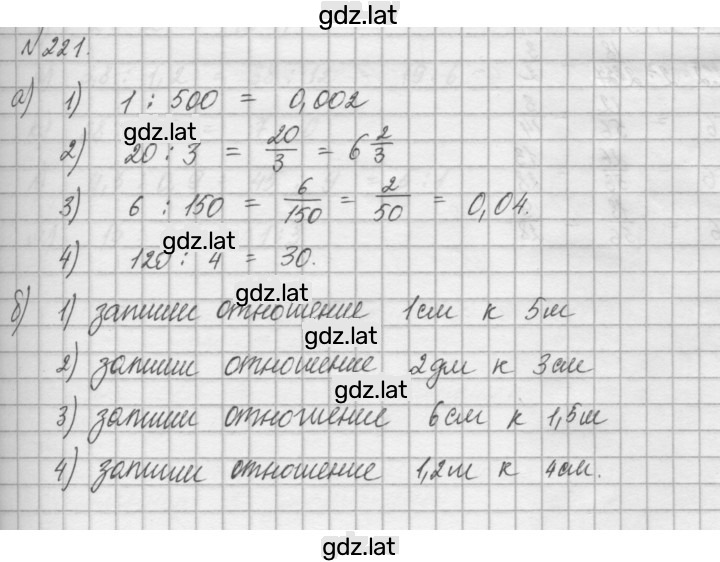 gdz.lat
№ 221.
а) 1) 1 : 500 = 0,002
gdz.lat
2) 20 : 3 = 20/3 = 6 2/3
3) 6 : 150 = 6/150 = 2/50 = 0,04.
gdz.lat
4) 120 : 4 = 30.
gdz.lat
б) 1) запиши отношение 1см к 5м
gdz.lat
2) запиши отношение 2дм к 3см
gdz.lat
3) запиши отношение 6см к 1,5м
4) запиши отношение 1,2м к 4см.
gdz.lat